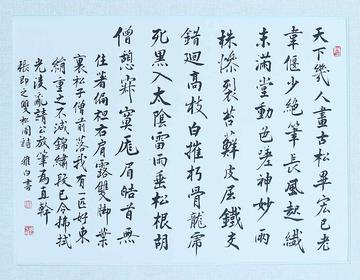 天下幾人畫古松畢宏已老
韋偃少絕筆長風起纖
末滿堂動色嗟神妙兩
株慘裂苔蘚皮屈鐵交
錯迴高枝白摧朽骨龍虎
死黑入太陰雷雨垂松根胡
僧憩寂寞龐眉皓首無
住著偏袒右肩露雙腳葉
裏松子僧前落我有一匹好東
絹重之不減錦繡段已令拂拭
光凌亂請公放筆為直幹
張即之雙松圖詩 白書